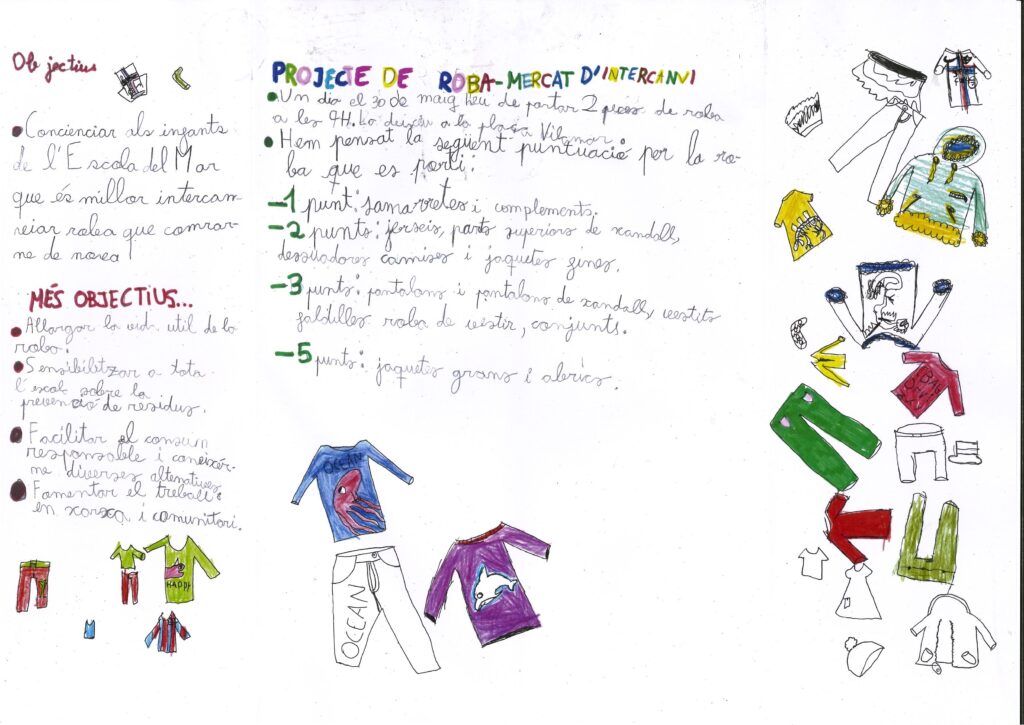 Objectius
Concienciar als infants
de l'Escola del Mar
que és millor intercam-
viar roba que comrar-
ne de nova
MÉS OBJECTIUS...
Allargar la vida util de la
roba.
Sensibilitzar a tota
l'escola sobre la
prevenció de residus.
Facilitar el consum
responsable i coneixér-
ne diverses altenatives
Fomentar el treball
en xarxa i comunitari.
PROJECTE DE ROBA-MERCAT D'INTERCANVI
Un dia el 30 de maig heu de portar 2 peces de roba
a les 9H. La deixeu a la plaça Vilamar
Hem pensat la següent puntuació per la ro-
ba que es porti:
-1 punt: samarretes i complements.
-2 punts: jerseis, parts superiors de xandall,
dessuadores camises i jaquetes fines.
-3 punts: pantalons i pantalons de xandall, vestits
faldilles roba de vestir, conjunts.
-5 punts: jaquetes grans i abrics.
OCEAN
OCEAN
HAPPY